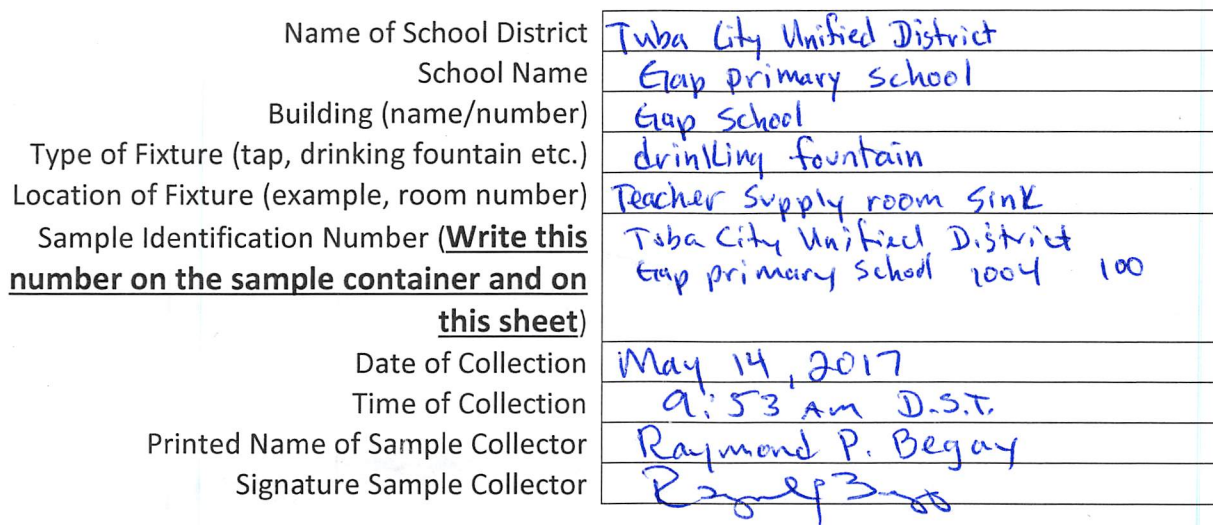 Name of School District Tuba City Unified District
School Name Gap primary school
Building (name/number) Gap School
Type of Fixture (tap, drinking fountain etc.) drinking fountain
Location of Fixture (example, room number) Teacher Supply room Sink
Sample Identification Number (Write this Tuba City Unified District
number on the sample container and on Gap primary School 1004 100
this sheet)
Date of Collection May 14, 2017
Time of Collection 9:53 Am D.S.T.
Printed Name of Sample Collector Raymond P. Begay
Signature Sample Collector